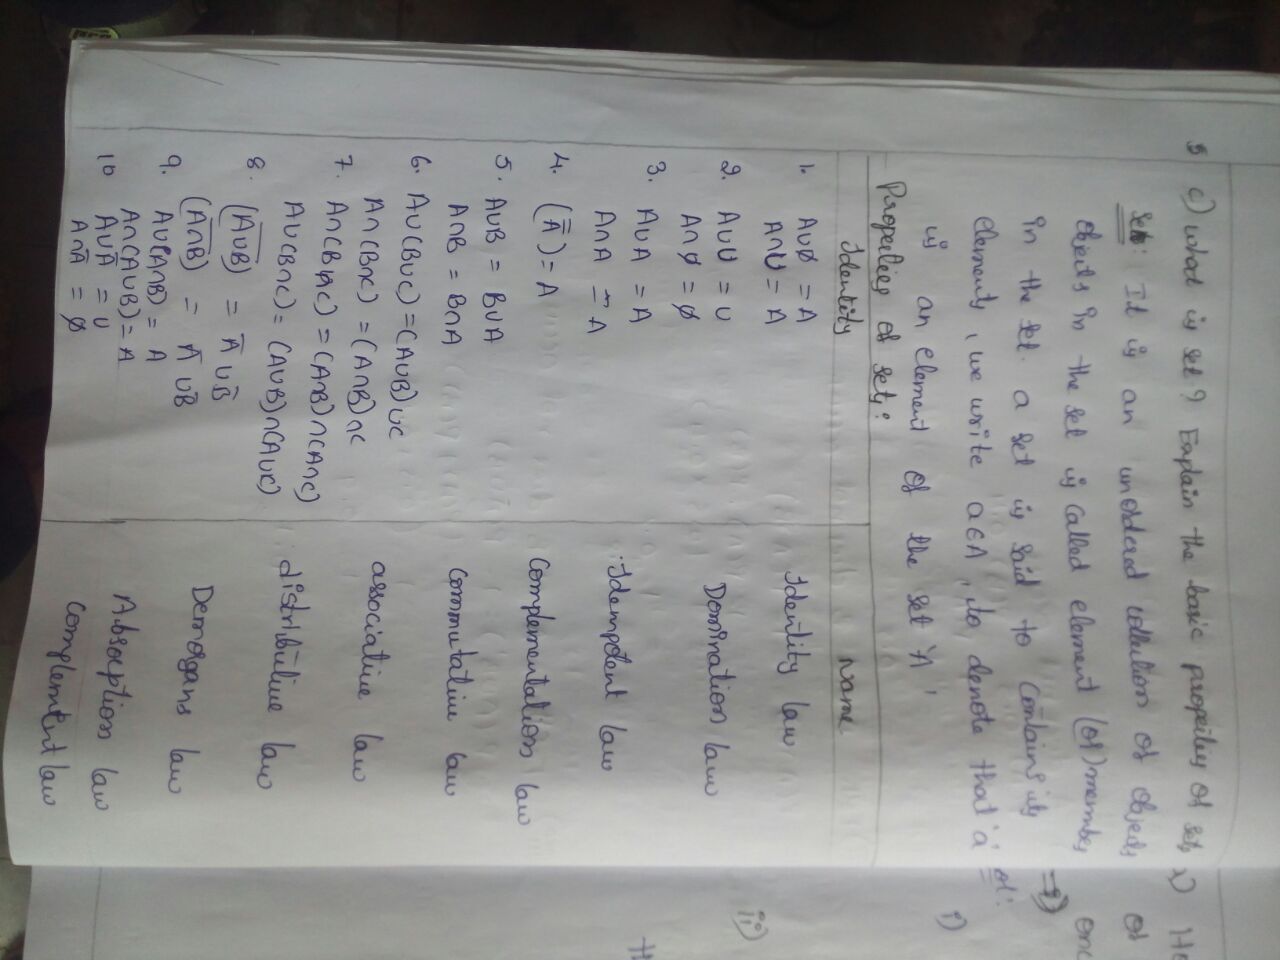 5 c) what is set? Explain the basic properties of sets
Set: It is an unordered collection of objects
objects in the set is called element (or) member
in the set. a set is said to contains its
elements, we write a∈A, to denote that 'a'
is an element of the set 'A'
Properties of sets:
Identity Name
1. A∪Ø = A Identity law
A∩U = A
2. A∪U = U Domination law
A∩Ø = Ø
3. A∪A = A Idempotent law
A∩A = A
4. (A̿) = A Complementation law
5. A∪B = B∪A Commutative law
A∩B = B∩A
6. A∪(B∪C) = (A∪B)∪C associative law
A∩(B∩C) = (A∩B)∩C
7. A∩(B∩C) = (A∩B)∩(A∩C) distributive law
A∪(B∩C) = (A∪B)∩(A∪C)
8. (A∪B)̅ = A̅ ∪ B̅ Demorgans law
(A∩B)̅ = A̅ ∪ B̅
9. A∪(A∩B) = A Absorption law
A∩(A∪B) = A
10 A∪A̅ = U Complement law
A∩A̅ = Ø
i)
ii)